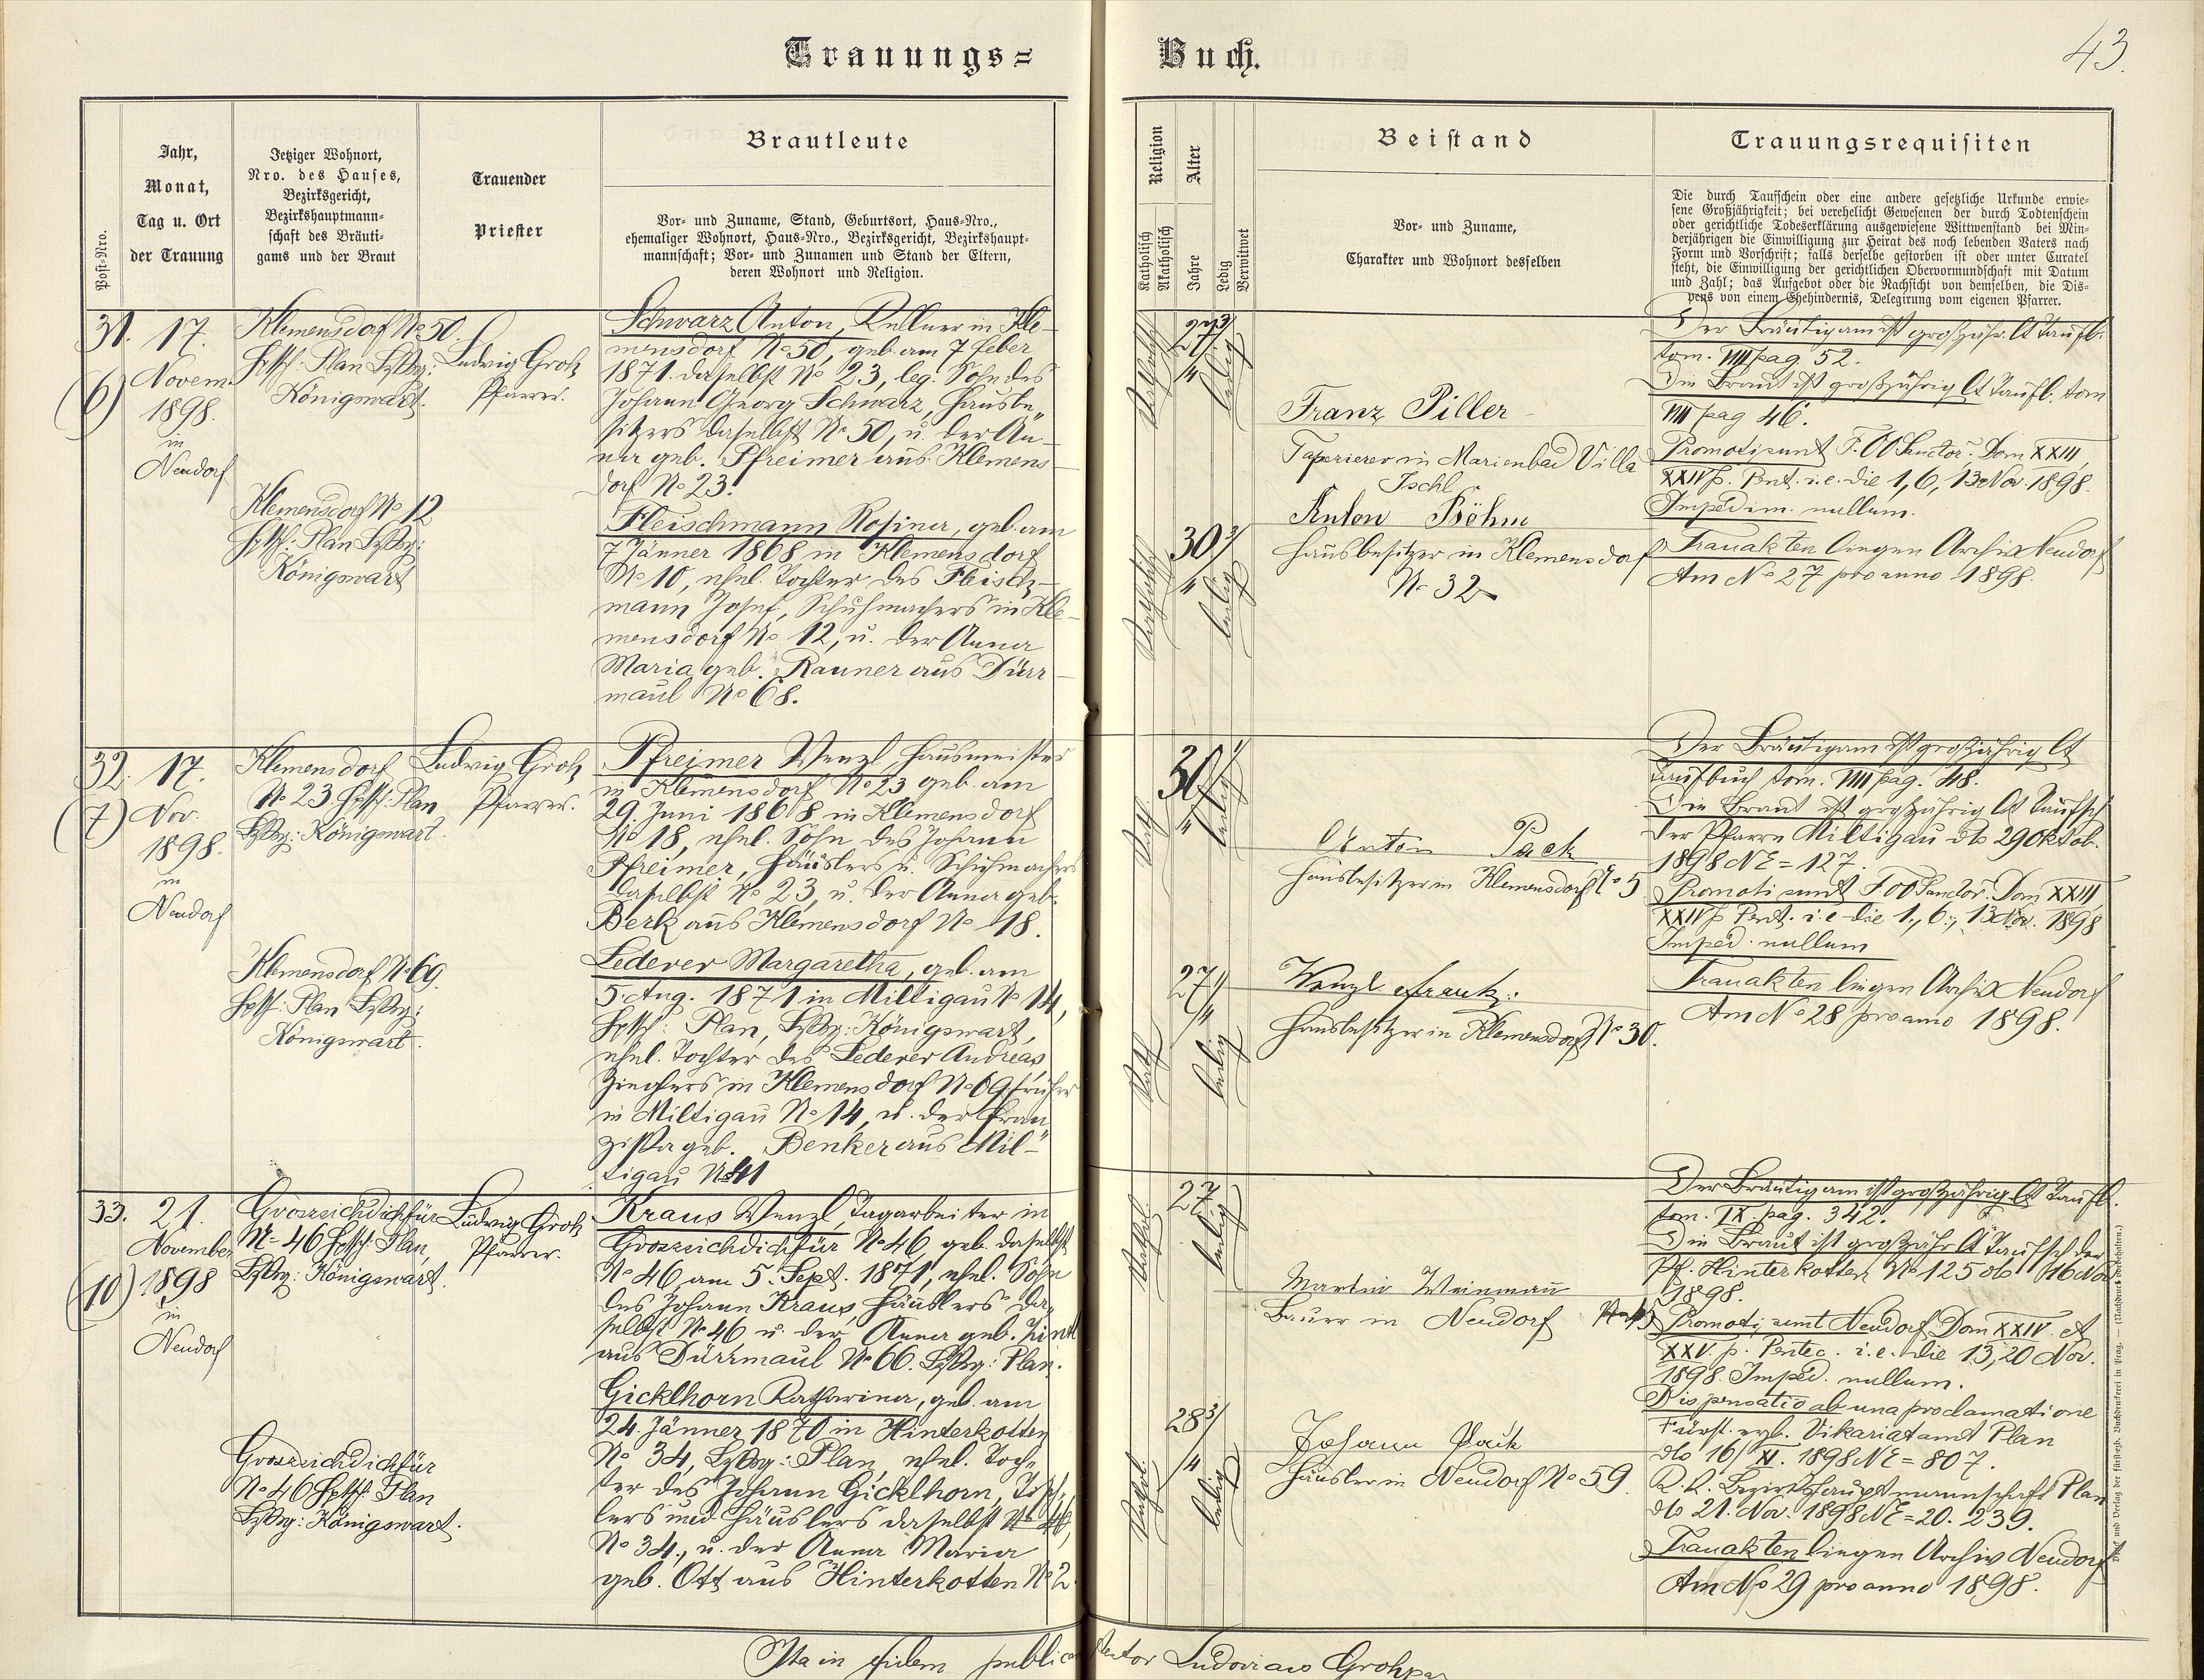 Trauungs=
Buch.
43.
Post-Nro.
Jahr,
Monat,
Tag u. Ort
der Trauung
Jetziger Wohnort,
Nro. des Hauses,
Bezirksgericht,
Bezirkshauptmann-
schaft des Bräuti-
gams und der Braut
Trauender
Priester
Brautleute
Vor- und Zuname, Stand, Geburtsort, Haus-Nro.,
ehemaliger Wohnort, Haus-Nro., Bezirksgericht, Bezirkshaupt-
mannschaft; Vor- und Zunamen und Stand der Eltern,
deren Wohnort und Religion.
Religion
Katholisch
Akatholisch
Alter
Jahre
Ledig
Verwitwet
Beistand
Vor- und Zuname,
Charakter und Wohnort desselben
Trauungsrequisiten
Die durch Taufschein oder eine andere gesetzliche Urkunde erwie-
sene Großjährigkeit; bei verehelicht Gewesenen der durch Todtenschein
oder gerichtliche Todeserklärung ausgewiesene Wittwenstand bei Min-
derjährigen die Einwilligung zur Heirat des noch lebenden Vaters nach
Form und Vorschrift; falls derselbe gestorben ist oder unter Curatel
steht, die Einwilligung der gerichtlichen Obervormundschaft mit Datum
und Zahl; das Aufgebot oder die Nachsicht von demselben, die Dis-
pens von einem Ehehindernis, Delegirung vom eigenen Pfarrer.
31.
(6)
17.
Novem.
1898.
in
Neudorf
Klemensdorf No 50.
Hptsch: Plan Bzksg:
Königswart.
Klemensdorf No 12
Hptsch: Plan Bzksg:
Königswart
Ludwig Groh
Pfarrer.
Schwarz Anton, Kellner in Kle-
mensdorf No 50, geb. am 7 Feber
1871. daselbst No 23, leg. Sohn des
Johann Georg Schwarz, Hausbe„
sitzers daselbst No 50, u. der An-
na geb. Pfreimer aus Klemens-
dorf No 23.
Fleischmann Rosina, geb. am
7 Jänner 1868 in Klemensdorf
No 10, ehel. Tochter des Fleisch-
mann Josef, Schuhmachers in Kle-
mensdorf No 12, u. der Anna
Maria geb. Rauner aus Dürr-
maul No 68.
Katholisch
27 3/4
ledig
Katholisch
30 3/4
ledig
Franz Piller
Tapezierer in Marienbad Villa
Ischl
Anton Böhm
Hausbesitzer in Klemensdorf
No 32
Der Bräutigam ist großjähr. lt Taufb.
tom. VIII pag 52.
Die Braut ist großjährig lt Taufb. tom
VIII pag 46.
Promoti sunt F. OO Sanctor. Dom XXIII,
XXIV p. Pent. i. e. die 1, 6, 13 Nov 1898.
Impedim. nullum.
Trauakten liegen Archiv Neudorf
Am No 27 pro anno 1898.
32.
(7)
17.
Nov.
1898.
in
Neudorf
Klemensdorf
No 23 Hptsch: Plan
Bzksg: Königswart.
Klemensdorf No 69.
Hptsch: Plan Bzksg:
Königswart.
Ludwig Groh
Pfarrer.
Pfreimer Wenzl, Hausmeister
in Klemensdorf No 23 geb. am
29. Juni 1868 in Klemensdorf
No 18, ehel. Sohn des Johann
Pfreimer, Häuslers u. Schuhmachers
daselbst No 23, u. der Anna geb.
Berk aus Klemensdorf No 18.
Lederer Margaretha, geb. am
5. Aug. 1871 in Miltigau No 14,
Hptsch: Plan, Bzksg: Königswart,
ehel. Tochter des Lederer Andreas,
Zieglers in Klemensdorf No 69 früher
in Miltigau No 14, u. der Fran„
ziska geb. Benker aus Mil-
tigau No 41
Kath
30 1/4
ledig
Kath
27 1/4
ledig
Anton Pack
Hausbesitzer in Klemensdorf No 5
Wenzl Frank
Hausbesitzer in Klemensdorf No 30.
Der Bräutigam ist großjährig lt
Taufbuch tom. VIII pag. 48.
Die Braut ist großjährig lt Taufsch
der Pfarre Miltigau dto 29 Oktob.
1898 NE = 127.
Promoti sunt F. OO Sanctor. Dom XXIII,
XXIV p Pent. i. e die 1., 6., 13 Nov. 1898
Imped. nullum
Trauakten liegen Archiv Neudorf
Am No 28 pro anno 1898.
33.
(10)
21.
November
1898
in
Neudorf
Groszsichdichfür
No 46 Hptsch: Plan,
Bzksg: Königswart.
Groszsichdichfür
No 46 Hptsch: Plan
Bzksg: Königswart.
Ludwig Groh
Pfarrer.
Kraus Wenzl, Tagarbeiter in
Groszsichdichfür No 46, geb. daselbst
No 46, am 5. Sept. 1871, ehel. Sohn
des Johann Kraus, Häuslers da„
selbst No 46 u. der Anna geb.
aus Dürrmaul No 66. Bzksg: Plan.
Gicklhorn Katharina, geb. am
24. Jänner 1870 in Hinterkotten
No 34, Bzksg: Plan, ehel. Toch„
ter des Johann Gicklhorn,
lers und Häuslers daselbst No 46,
No 34., u. der Anna Maria
geb. Ott aus Hinterkotten No 2.
Kathol.
27
ledig
Kathol.
28 3/4
ledig
Martin Weinmann
Bauer in Neudorf
Johann Pack
Häusler in Neudorf No 59.
Der Bräutigam ist großjährig lt Taufb.
tom. IX pag. 342.
Die Braut ist großjähr lt Taufsch der
Pf. Hinterkotten No 125 dto 16 Nov
1898.
Promoti sunt Neudorf Dom XXIV. et
XXV. p. Pentec. i. e. die 13, 20 Nov.
1898. Imped. nullum.
Dispensatio ab una proclamatione
Fürst. erzb. Vikariatamt Plan
dto 16/XI. 1898 NE = 807.
K. K. Bezirkshauptmannschaft Plan
dto 21. Nov. 1898 NE = 20. 239.
Trauakten liegen Archiv Neudorf
Am No 29 pro anno 1898.
und Verlag der fürsterzb. Buchdruckerei in Prag. — (Nachdruck vorbehalten.)
Ita in fidem publicam Ludovicus Groh